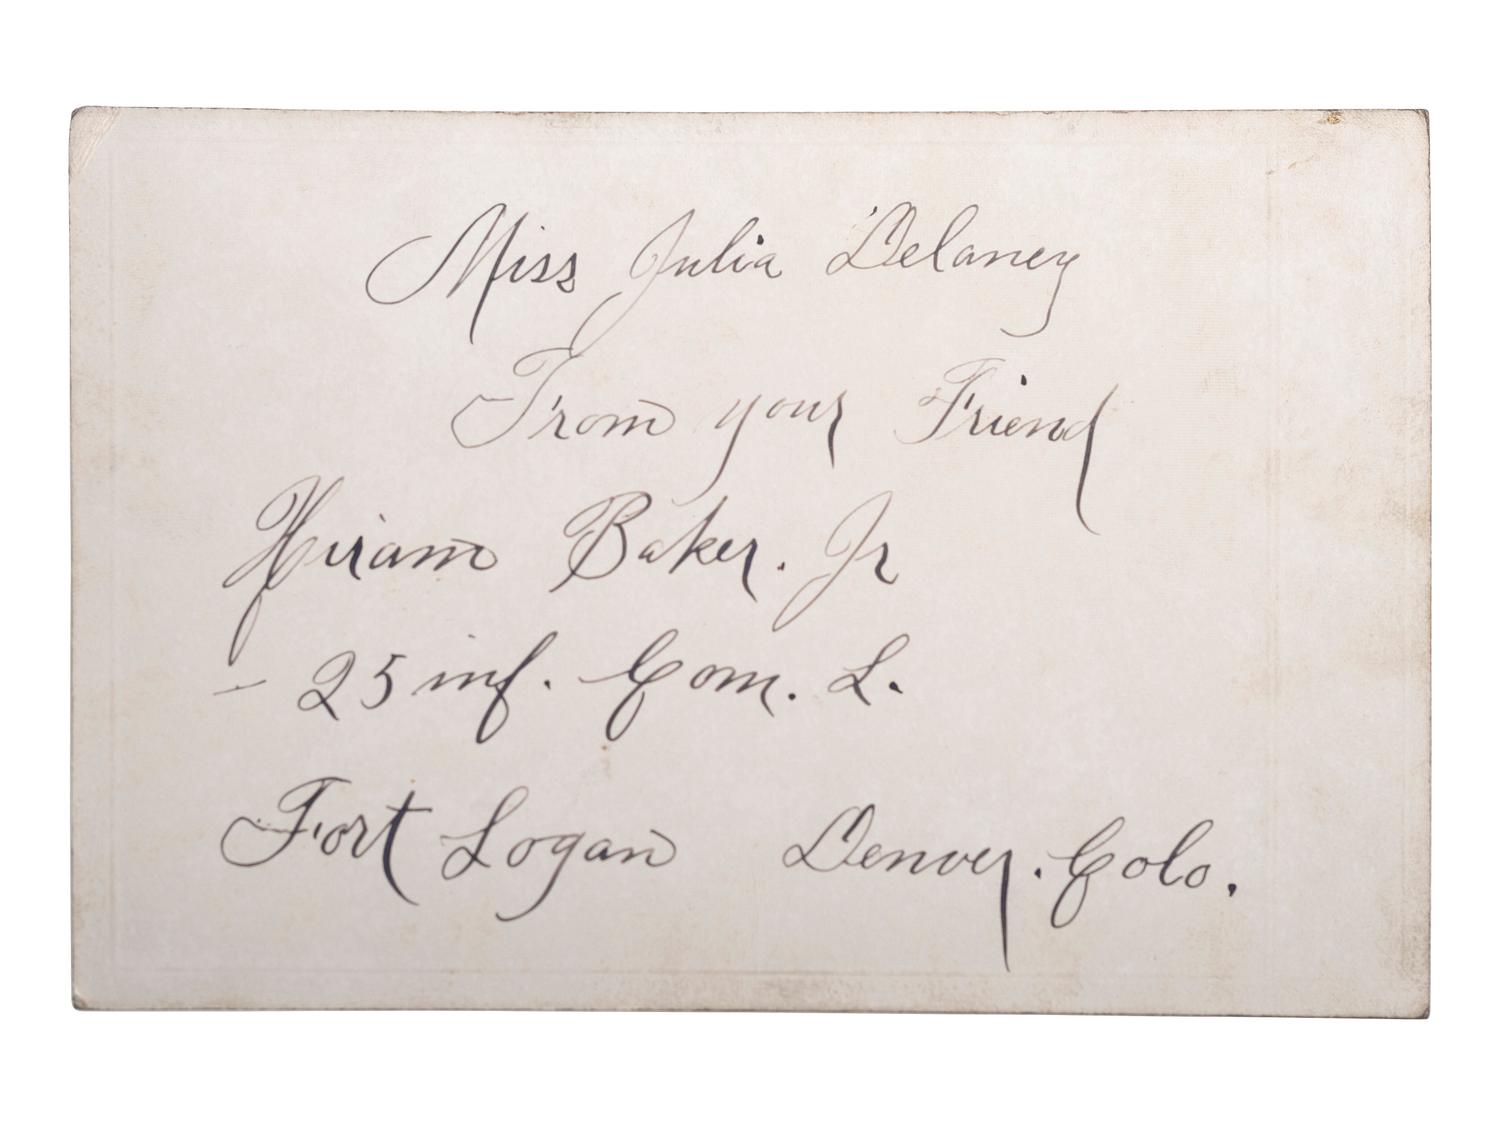 Miss Julia Delaney
From your Friend
Hiram Baker. Jr
- 25 inf. Com. L.
Fort Logan Denver. Colo.